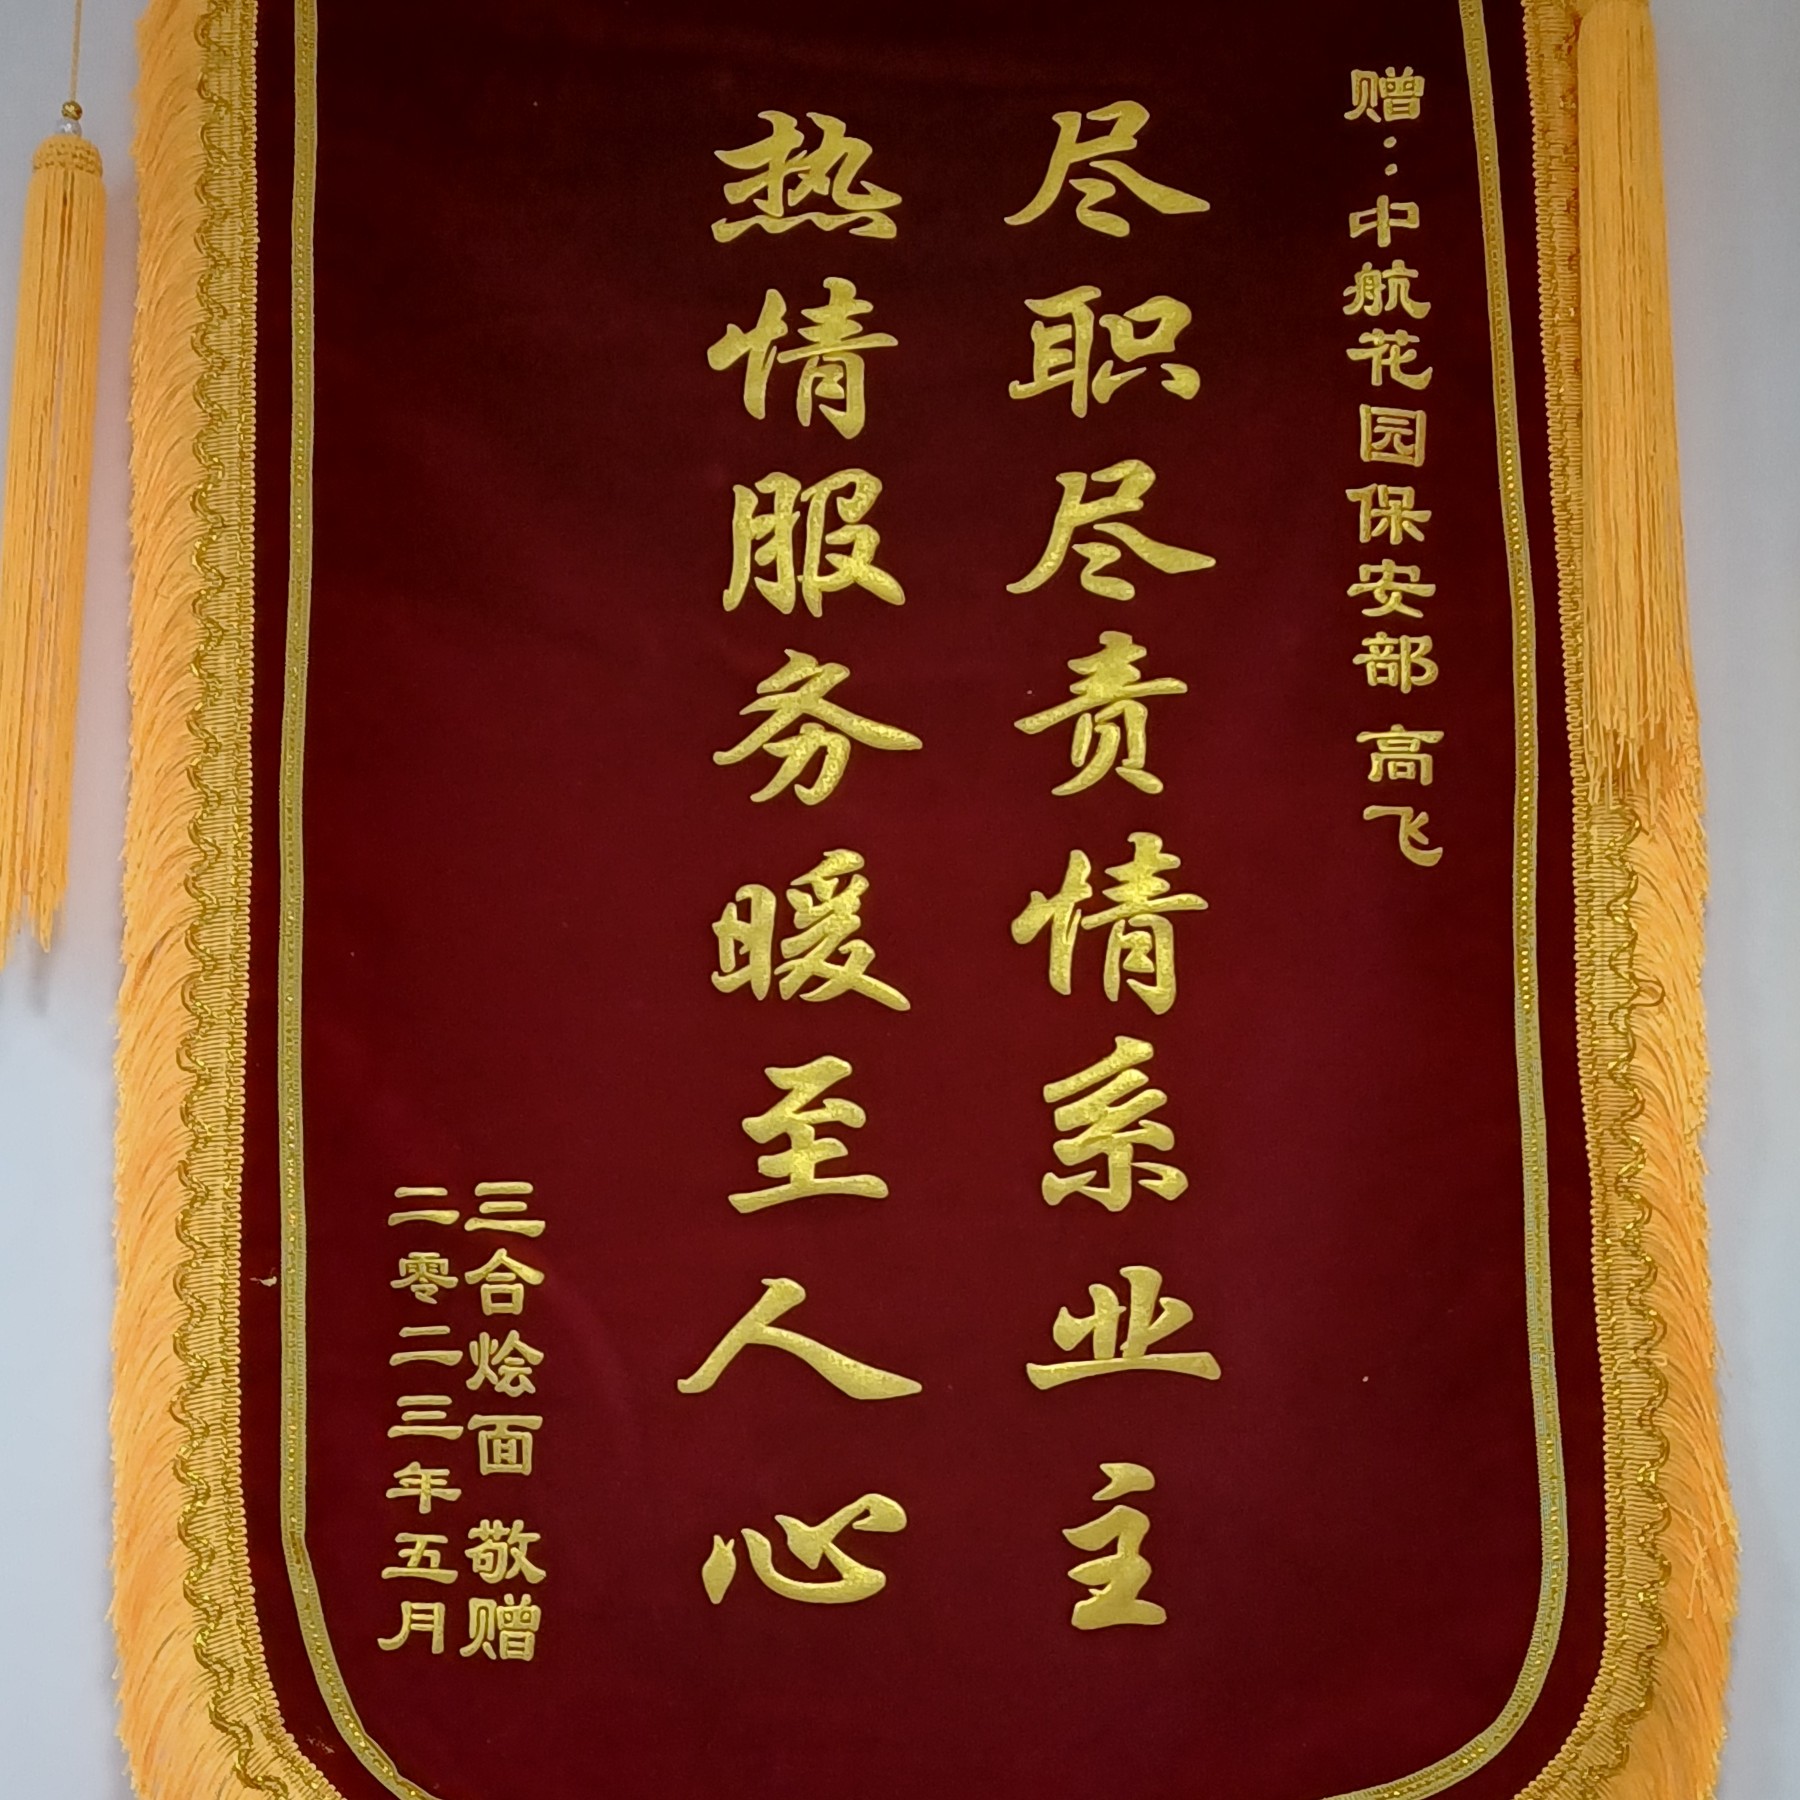 赠：中航花园保安部 高飞
尽职尽责情系业主
热情服务暖至人心
三合烩面 敬赠
二零二三年五月